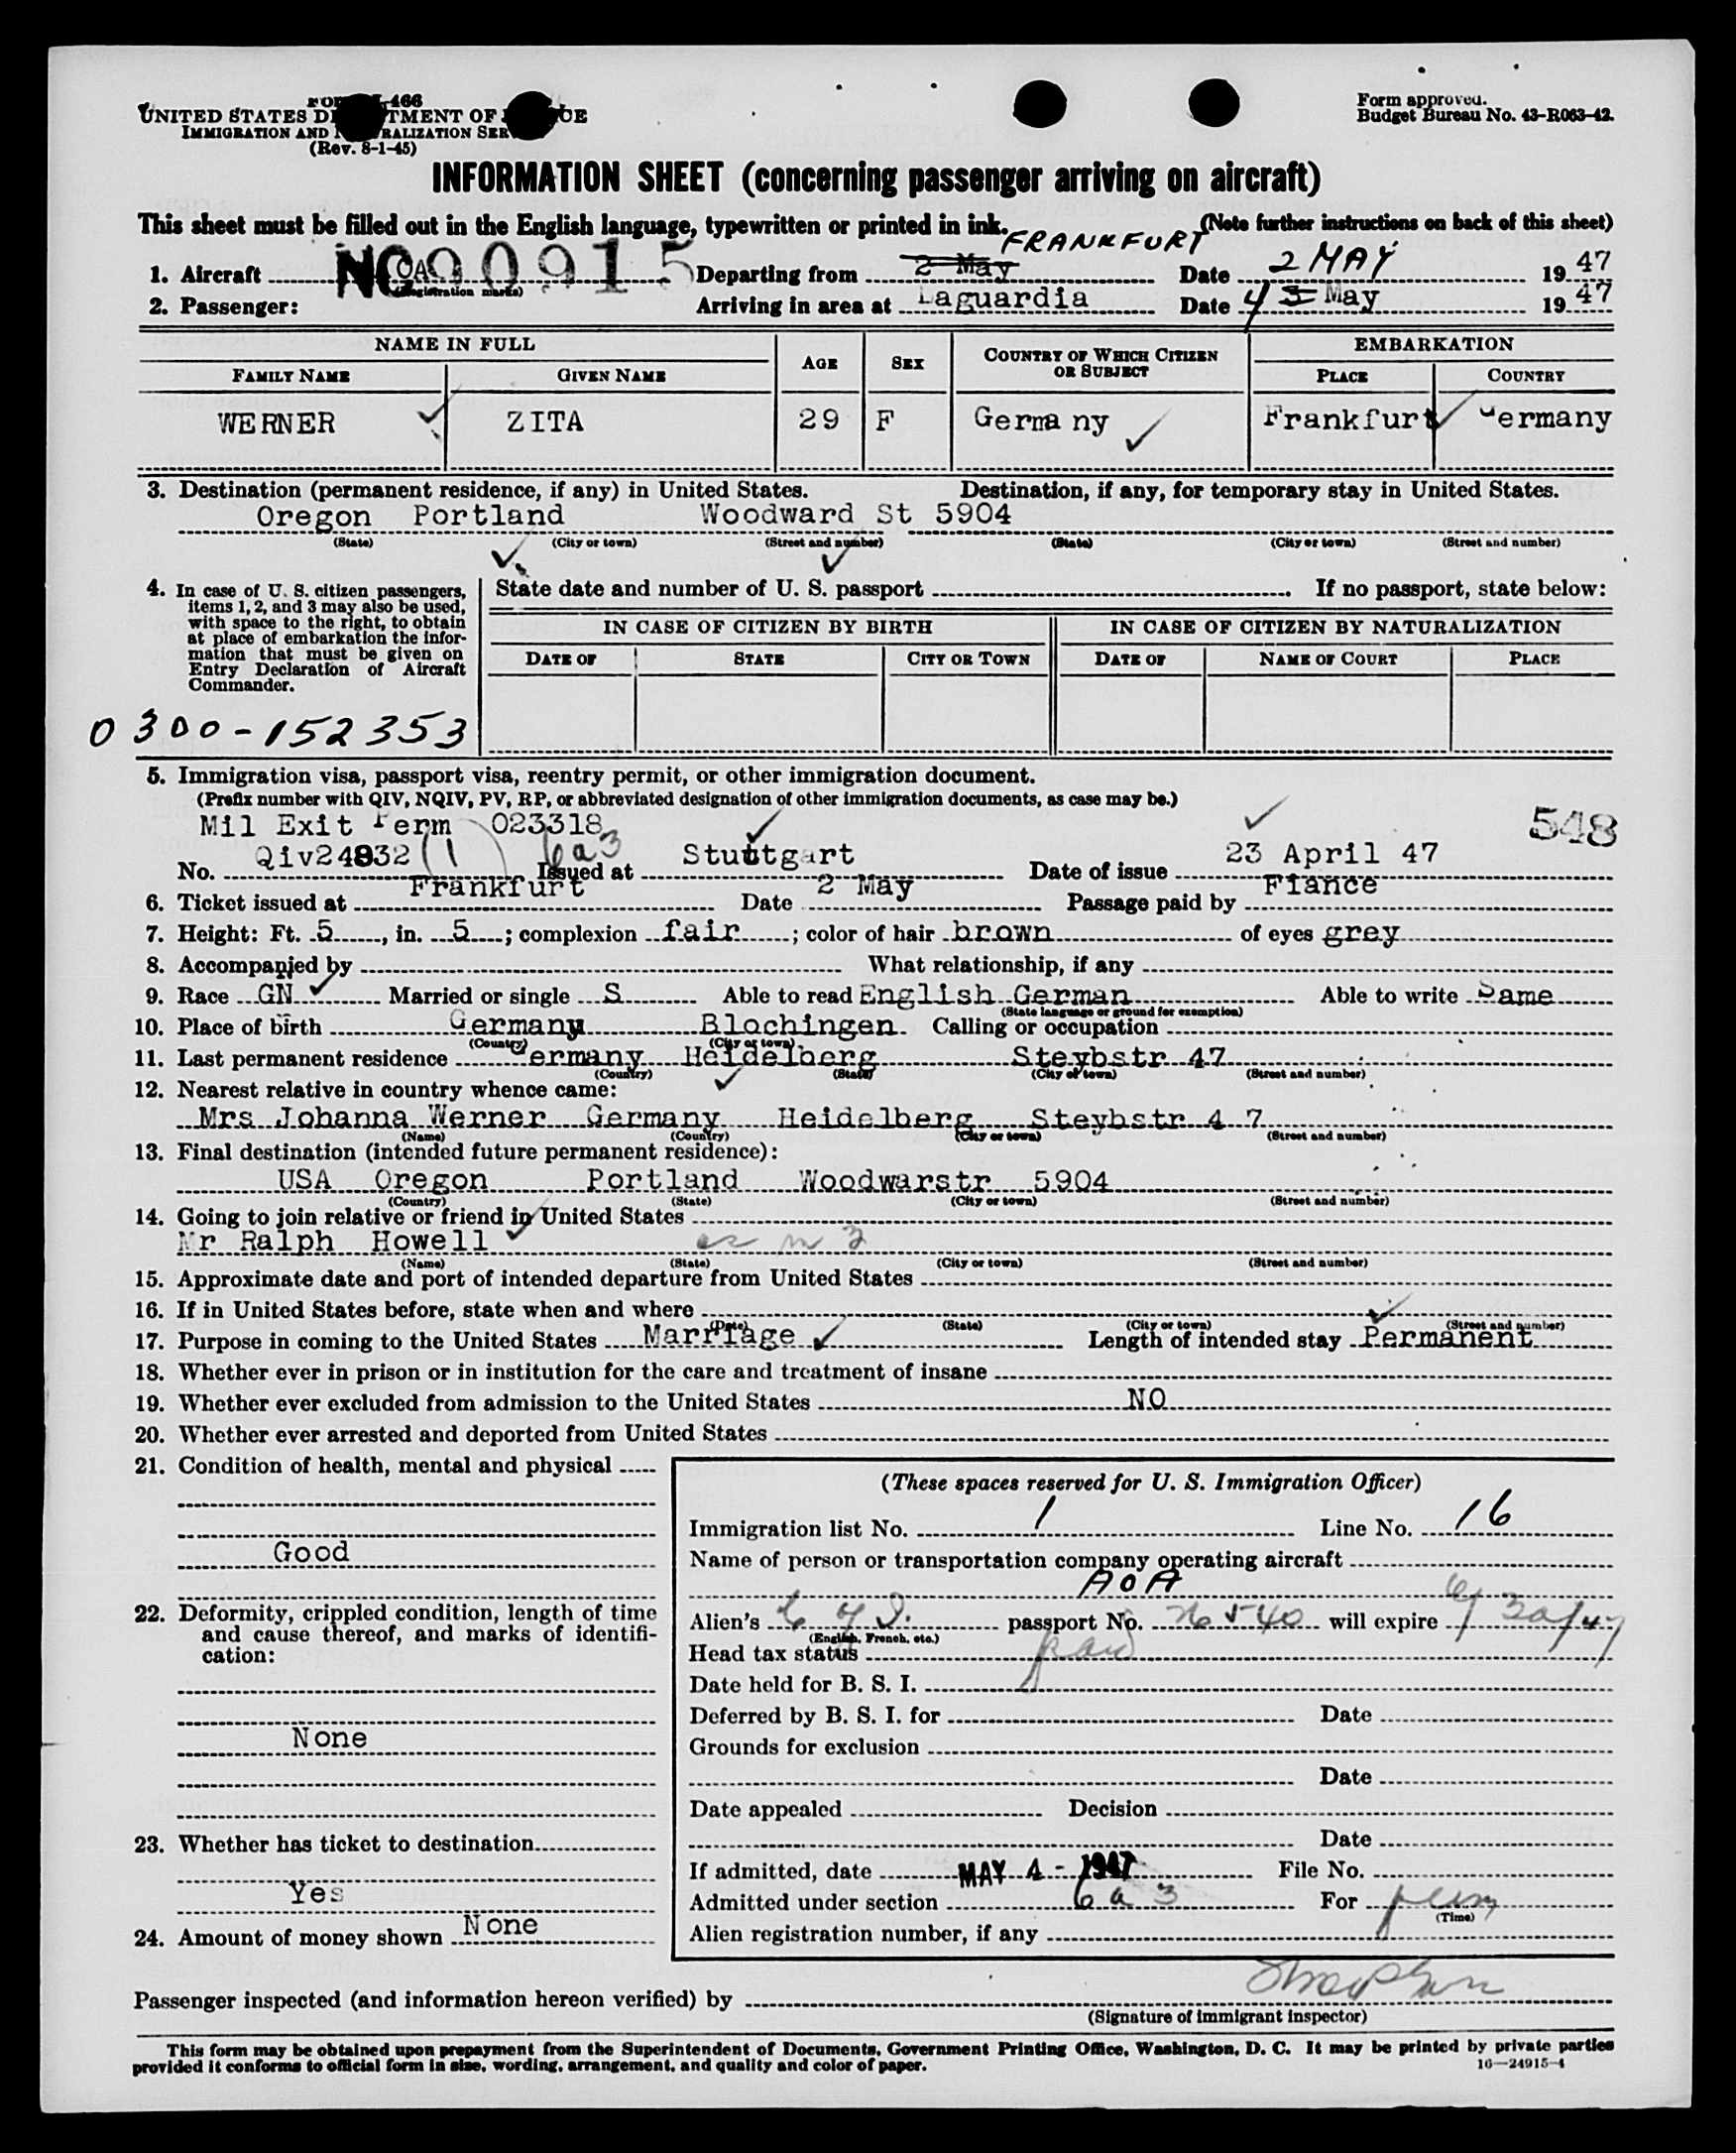 FORM I-466
UNITED STATES DEPARTMENT OF JUSTICE
IMMIGRATION AND NATURALIZATION SERVICE
(Rev. 8-1-45)
Form approved.
Budget Bureau No. 43-R063-42.
INFORMATION SHEET (concerning passenger arriving on aircraft)
This sheet must be filled out in the English language, typewritten or printed in ink. (Note further instructions on back of this sheet)
FRANKFURT
1. Aircraft NC 90915 OA (Registration marks) Departing from 2 May Date 2 MAY 1947
2. Passenger: Arriving in area at Laguardia Date 4 3 May 1947
NAME IN FULL AGE SEX COUNTRY OF WHICH CITIZEN OR SUBJECT EMBARKATION
FAMILY NAME GIVEN NAME PLACE COUNTRY
WERNER ZITA 29 F Germa ny Frankfurt Germany
3. Destination (permanent residence, if any) in United States. Destination, if any, for temporary stay in United States.
Oregon Portland Woodward St 5904
(State) (City or town) (Street and number) (State) (City or town) (Street and number)
4. In case of U. S. citizen passengers, items 1, 2, and 3 may also be used, with space to the right, to obtain at place of embarkation the information that must be given on Entry Declaration of Aircraft Commander.
State date and number of U. S. passport If no passport, state below:
IN CASE OF CITIZEN BY BIRTH IN CASE OF CITIZEN BY NATURALIZATION
DATE OF STATE CITY OR TOWN DATE OF NAME OF COURT PLACE
0300-152353
5. Immigration visa, passport visa, reentry permit, or other immigration document.
(Prefix number with QIV, NQIV, PV, RP, or abbreviated designation of other immigration documents, as case may be.)
Mil Exit Perm 023318 548
No. Qiv24832 (1) 6a3 Issued at Stuttgart Date of issue 23 April 47
6. Ticket issued at Frankfurt Date 2 May Passage paid by Fiance
7. Height: Ft. 5, in. 5; complexion fair; color of hair brown of eyes grey
8. Accompanied by What relationship, if any
9. Race GN Married or single S Able to read English German Able to write Same
(State language or ground for exemption)
10. Place of birth Germany Blochingen Calling or occupation
(Country) (City or town)
11. Last permanent residence Germany Heidelberg Steybstr 47
(Country) (State) (City or town) (Street and number)
12. Nearest relative in country whence came:
Mrs Johanna Werner Germany Heidelberg Steybstr 4 7
(Name) (Country) (City or town) (Street and number)
13. Final destination (intended future permanent residence):
USA Oregon Portland Woodwarstr 5904
(Country) (State) (City or town) (Street and number)
14. Going to join relative or friend in United States
Mr Ralph Howell
(Name) (State) (City or town) (Street and number)
15. Approximate date and port of intended departure from United States
16. If in United States before, state when and where
(Date) (State) (City or town) (Street and number)
17. Purpose in coming to the United States Marriage Length of intended stay Permanent
18. Whether ever in prison or in institution for the care and treatment of insane
19. Whether ever excluded from admission to the United States NO
20. Whether ever arrested and deported from United States
21. Condition of health, mental and physical
Good
22. Deformity, crippled condition, length of time and cause thereof, and marks of identification:
None
23. Whether has ticket to destination
Yes
24. Amount of money shown None
(These spaces reserved for U. S. Immigration Officer)
Immigration list No. 1 Line No. 16
Name of person or transportation company operating aircraft
AOA
Alien's passport No. will expire 6/30/47
(English, French, etc.)
Head tax status paid
Date held for B. S. I.
Deferred by B. S. I. for Date
Grounds for exclusion
Date
Date appealed Decision
Date
If admitted, date MAY 4 - 1947 File No.
Admitted under section 6 a 3 For perm
(Time)
Alien registration number, if any
Passenger inspected (and information hereon verified) by
(Signature of immigrant inspector)
This form may be obtained upon prepayment from the Superintendent of Documents, Government Printing Office, Washington, D. C. It may be printed by private parties
provided it conforms to official form in size, wording, arrangement, and quality and color of paper. 16—24915-4